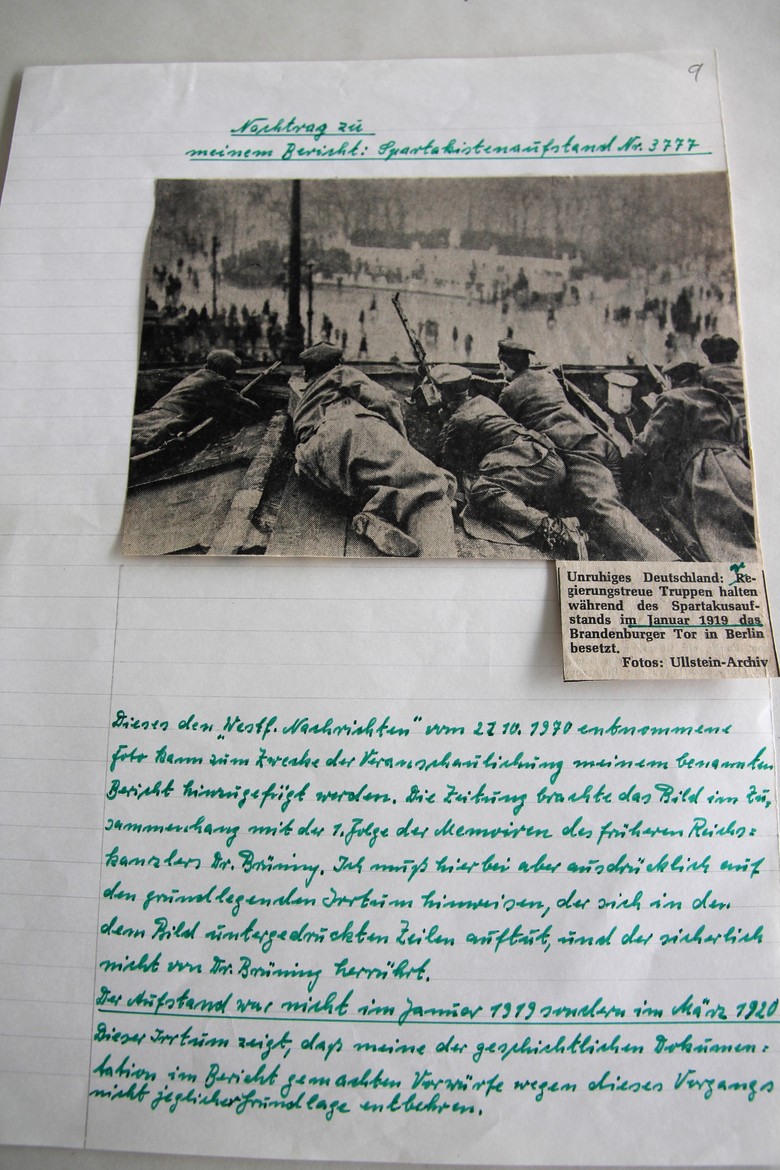 9
Nachtrag zu
meinem Bericht: Spartakistenaufstand Nr. 3777
Unruhiges Deutschland: Re-
gierungstreue Truppen halten
während des Spartakusauf-
stands im Januar 1919 das
Brandenburger Tor in Berlin
besetzt.
Fotos: Ullstein-Archiv
Dieses den „Westf. Nachrichten" vom 27.10. 1970 entnommene
Foto kann zum Zwecke der Veranschaulichung meinem benannten
Bericht hinzugefügt werden. Die Zeitung brachte das Bild im Zu=
sammenhang mit der 1. Folge der Memoiren des früheren Reichs=
kanzlers Dr. Brüning. Ich muß hierbei aber ausdrücklich auf
den grundlegenden Irrtum hinweisen, der sich in den
dem Bild untergedruckten Zeilen auftut, und der sicherlich
nicht von Dr. Brüning herrührt.
Der Aufstand war nicht im Januar 1919 sondern im März 1920
Dieser Irrtum zeigt, daß meine der geschichtlichen Dokumen=
tation im Bericht gemachten Vorwürfe wegen dieses Vorgangs
nicht jeglicher Grundlage entbehren.